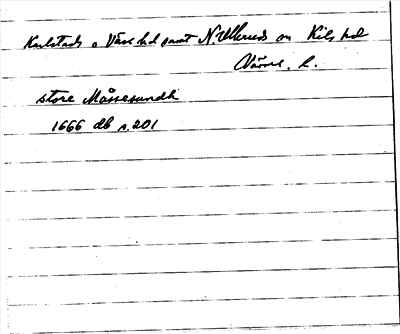 Karlstads o Väse hd samt N. Ullerud sn Kils hd
Värml. l.
store Måssesundh
1666 db s. 201